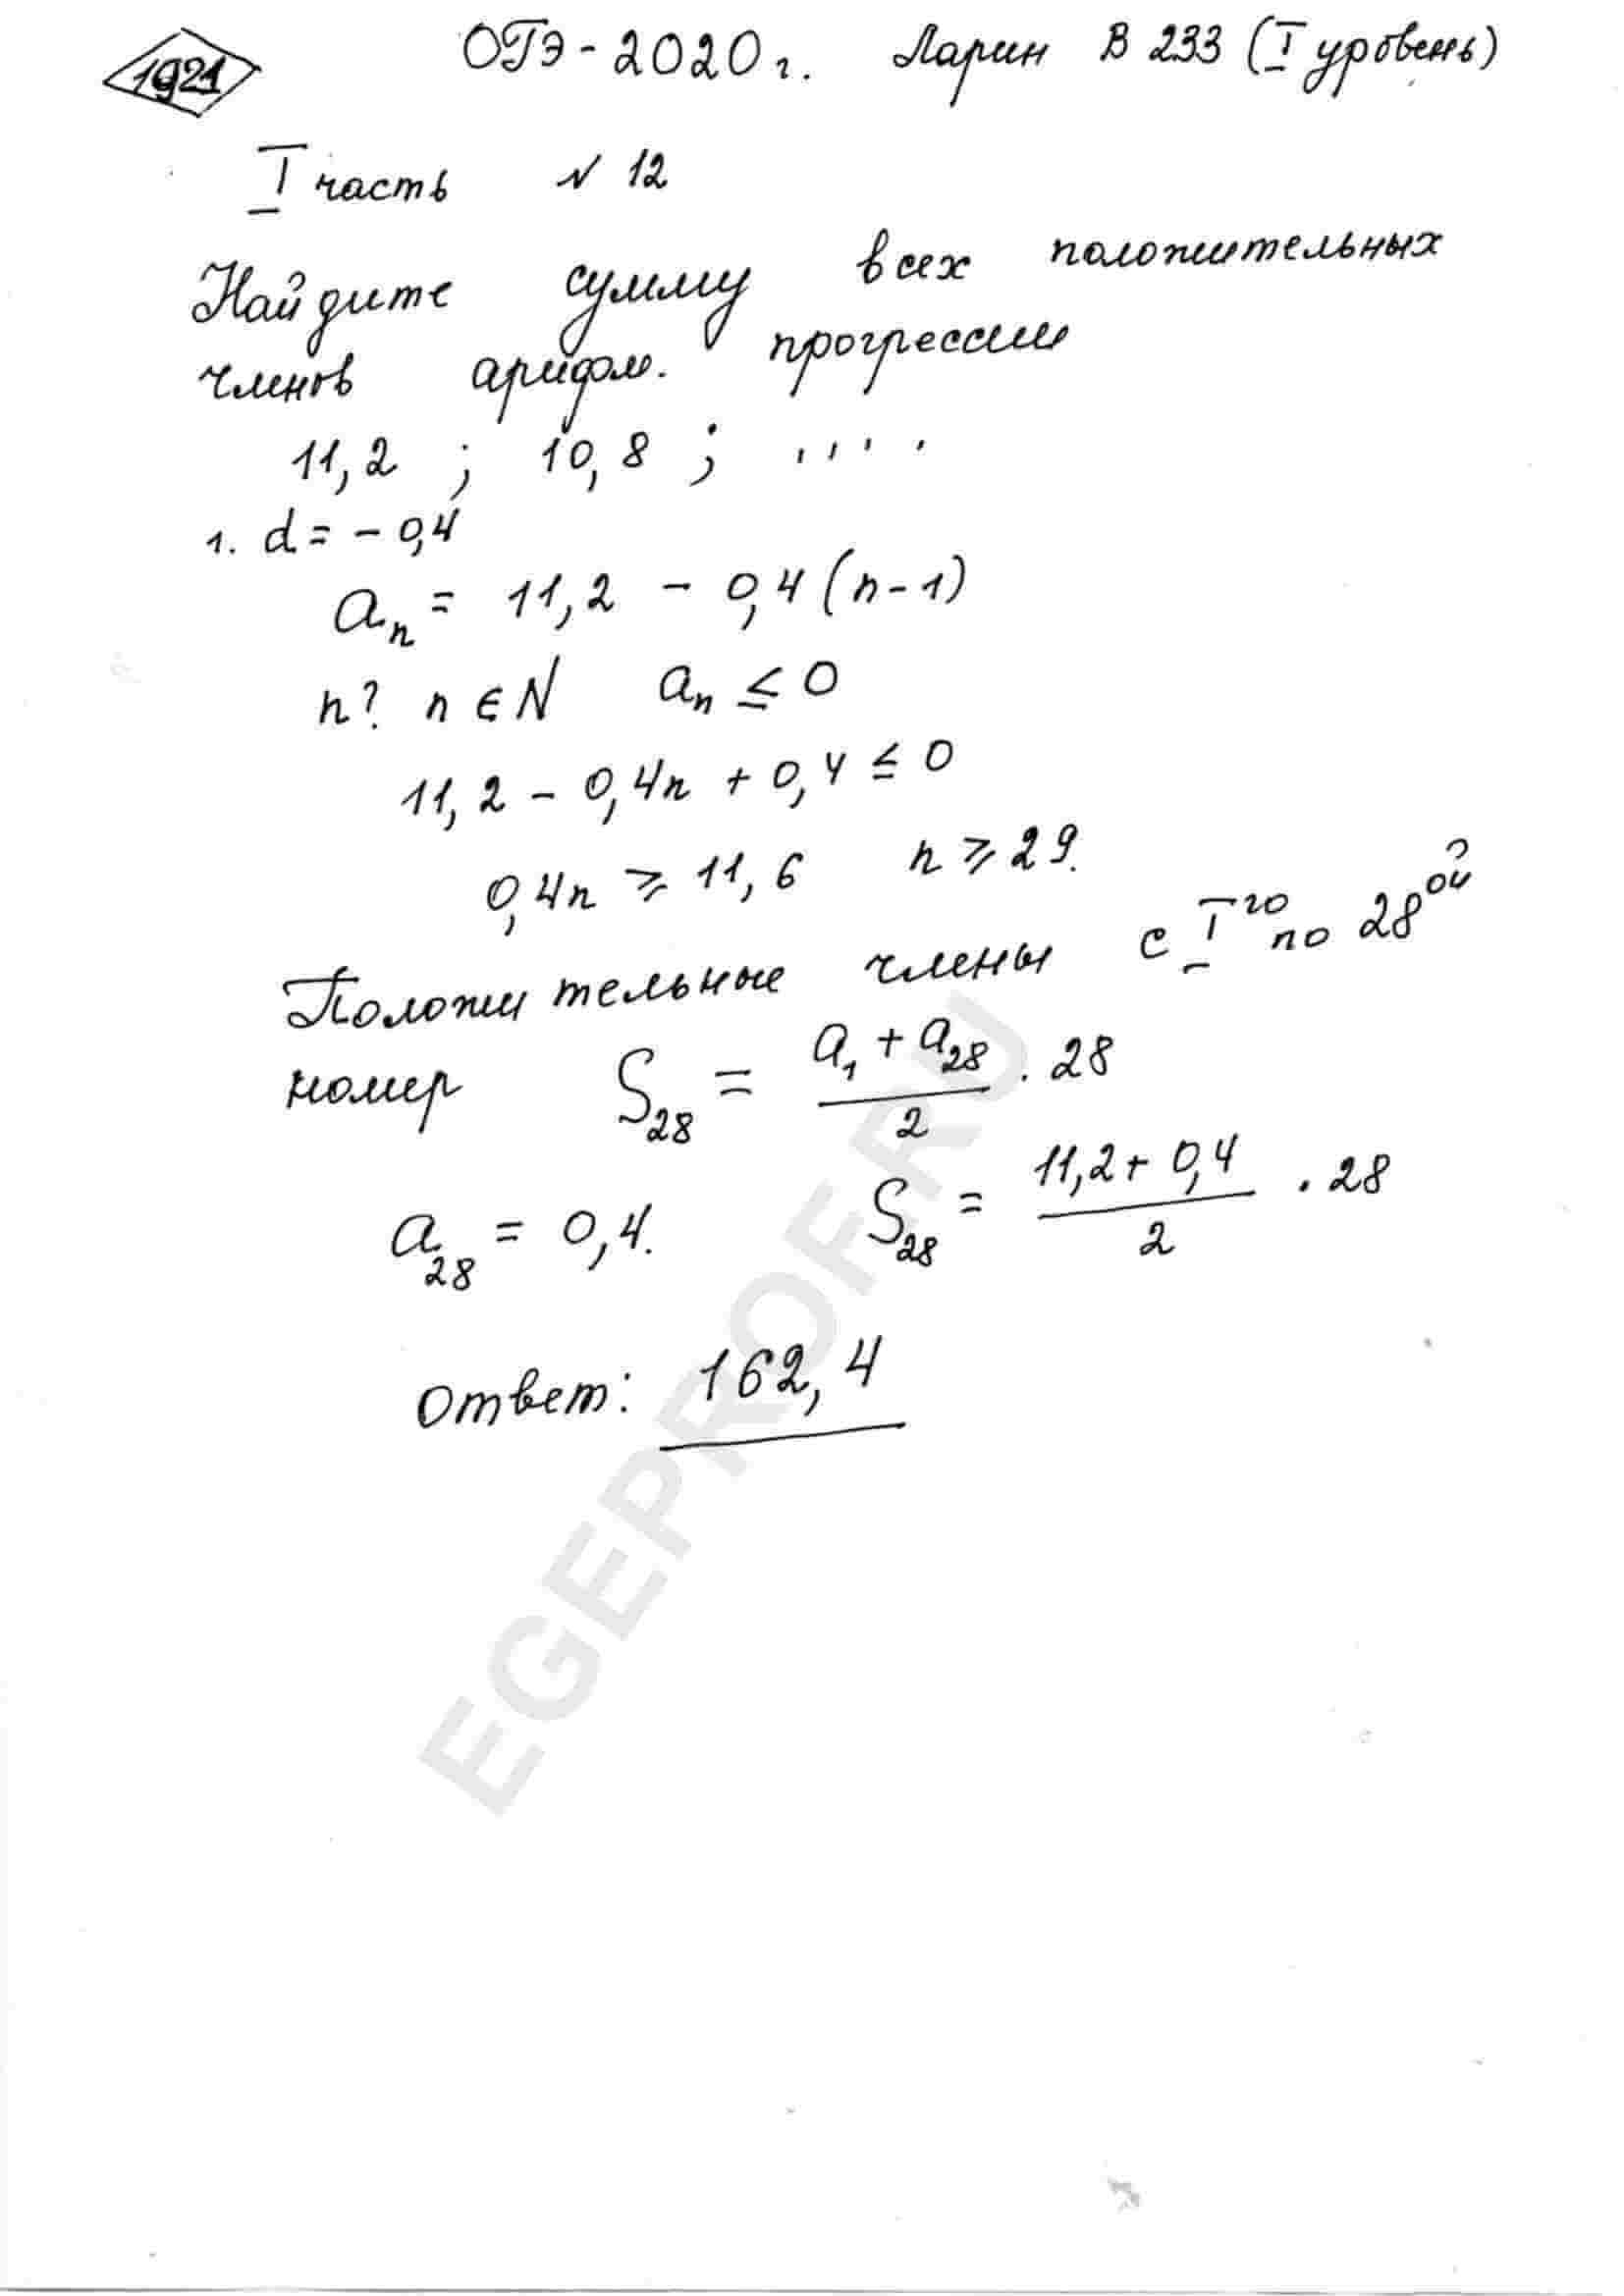 1921
ОГЭ-2020г. Ларин В 233 (I уровень)
I часть № 12
Найдите сумму всех положительных
членов арифм. прогрессии
11,2 ; 10,8 ; ....
1. d = - 0,4
aₙ = 11,2 - 0,4(n-1)
n? n ∈ N aₙ ≤ 0
11,2 - 0,4n + 0,4 ≤ 0
0,4n ≥ 11,6 n ≥ 29.
Положительные члены с I го по 28 ой
номер S₂₈ = (a₁ + a₂₈)/2 · 28
a₂₈ = 0,4. S₂₈ = (11,2 + 0,4)/2 · 28
Ответ: 162,4
EGEPROF.RU